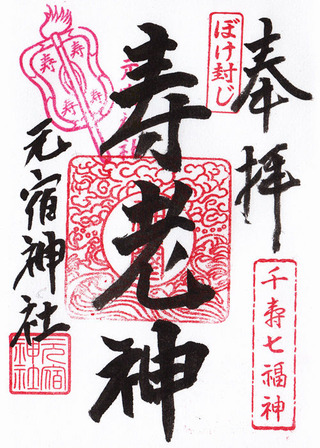 奉拝
ぼけ封じ
千寿七福神
寿老神
元宿神社
寿
寿
寿
寿
元宿
神社